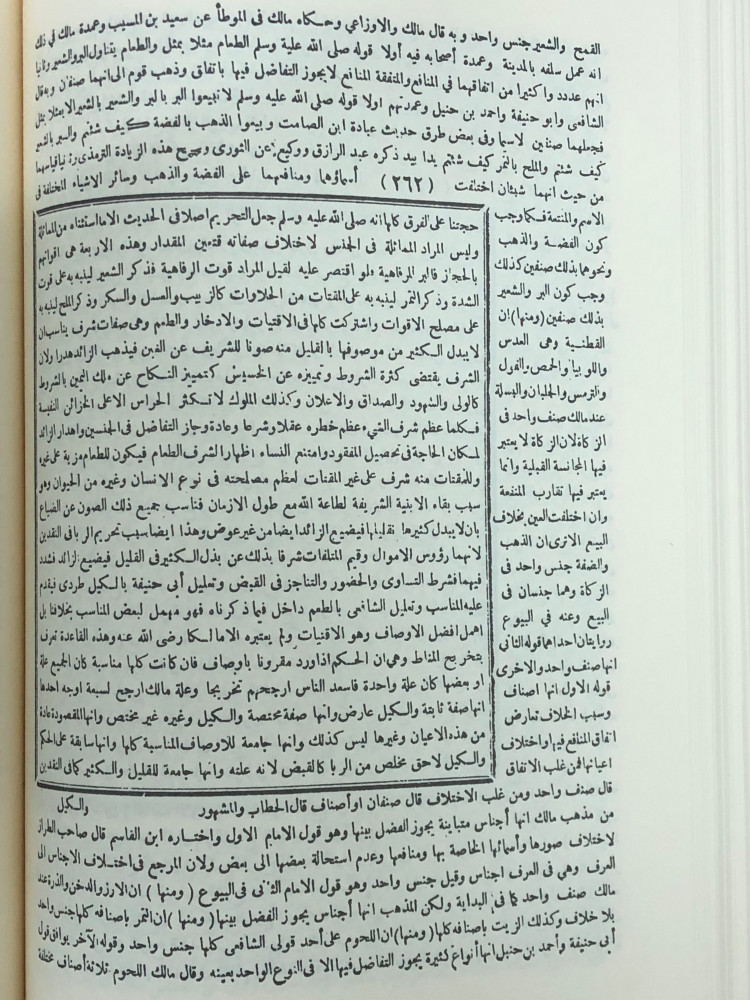 القمح والشعير جنس واحد وبه قال مالك والاوزاعي وحكاه مالك فى الموطأ عن سعيد بن المسيب وعمدة مالك في ذلك
انه عمل سلفه بالمدينة وعمدة أصحابه فيه أولا قوله صلى الله علية وسلم الطعام مثلا بمثل والطعام يتناول البر والشعير وثانيا
انهم عددوا كثيرا من اتفاقهما في المنافع والمتفقة المنافع لايجوز التفاضل فيها باتفاق وذهب قوم الى انهما صنفان وبه قال
الشافعى وابو حنيفة واحمد بن حنبل وعمدتهم اولا قوله صلى الله عليه وسلم لاتبيعوا البر بالبر والشعير بالشعير الا مثلا بمثل
فجعلهما صنفين لاسيما وفى بعض طرق حديث عبادة ابن الصامت وبيعوا الذهب بالفضة كيف شئتم والبر بالشعير
كيف شئتم والملح بالتمر كيف شئتم يدا بيد ذكره عبد الرازق ووكيع عن الثورى وصحح هذه الزيادة الترمذى وثانيا قياسهما
من حيث انهما شيئان اختلفت (٢٦٢) أسماؤهما ومنافعهما على الفضة والذهب وسائر الاشياء المختلفة فى
الاسم والمنفعة فكما وجب
كون الفضة والذهب
ونحوهما بذلك صنفين كذلك
وجب كون البر والشعير
بذلك صنفين (ومنها) ان
القطنية وهى العدس
واللوبيا والحمص والفول
والترمس والجلبان والبسلة
عند مالك صنف واحد فى
الزكاة لان الزكاة لا يعتبر
فيها المجانسة القبلية وانما
يعتبر فيها تقارب المنفعة
وان اختلفت العين بخلاف
البيع الاترى ان الذهب
والفضة جنس واحد فى
الزكاة وهما جنسان فى
البيع وعنه في البيوع
روايتان احداهما قوله الثانى
انها صنف واحد والاخرى
قوله الاول انها اصناف
وسبب الخلاف تعارض
اتفاق المنافع فيها واختلاف
اعيانها فمن غلب الاتفاق
حجتنا على الفرق كلها انه صلى الله عليه وسلم جعل التحريم اصلا فى الحديث الاما استثناه من المماثلة
وليس المراد المماثلة فى الجنس لاختلاف صفاته فتعين المقدار وهذه الاربعة هى اقواتهم
بالحجاز فالبر للرفاهية فلو اقتصر عليه لقيل المراد قوت الرفاهية فذكر الشعير لينبه به على قوت
الشدة وذكر التمر لينبه به على المقتات من الحلاوات كالزبيب والعسل والسكر وذكر الملح لينبه به
على مصلح الاقوات واشتركت كلها فى الاقتيات والادخار والطعم وهى صفات شرف يناسب ان
لايبدل الكثير من موصوفها بالقليل منه صونا للشريف عن الغبن فيذهب الزائد هدرا ولان
الشرف يقتضى كثرة الشروط وتمييزه عن الخسيس كتمييز النكاح عن ملك اليمين بالشروط
كالولى والشهود والصداق والاعلان وكذلك الملوك لاتكثر الحراس الاعلى الخزائن النفيسة
فكلما عظم شرف الشىء عظم خطره عقلا وشرعا وعادة وجاز التفاضل فى الجنسين واهدار الزائد
لمكان الحاجة فى تحصيل المفقود وامتنع النساء اظهارا لشرف الطعام فيكون للطعام مزية على غيره
وللمقتات منه شرف على غير المقتات لعظم مصلحته فى نوع الانسان وغيره من الحيوان وهو
سبب بقاء الابنية الشريفة لطاعة الله مع طول الازمان فناسب جميع ذلك الصون عن الضياع
بان لايبدل كثيرها بقليلها فيضيع الزائد ايضا من غير عوض وهذا ايضا سبب تحريم الربا فى النقدين
لانهما رؤوس الاموال وقيم المتلفات شرفا بذلك عن بذل الكثير فى القليل فيضيع الزائد فشدد
فيهما فشرط التساوى والحضور والتناجز فى القبض وتعليل أبى حنيفة بالكيل طردى فيقدم
عليه المناسب وتعليل الشافعى بالطعم داخل فيما ذكرناه فهو مهمل لبعض المناسب بخلافنا بل
اهمل افضل الاوصاف وهو الاقتيات ولم يعتبره الا مالكا رضى الله عنه وهذه القاعدة تعرف
بتخريج المناط وهى ان الحكم اذا ورد مقرونا باوصاف فان كانت كلها مناسبة كان الجميع علة
او بعضها كان علة واحدة فاسعد الناس ارجحهم تخريجا وعلة مالك ارجح لسبعة اوجه احدها
انها صفة ثابتة والكيل عارض وانها صفة مختصة والكيل وغيره غير مختص وانها المقصودة عادة
من هذه الاعيان وغيرها ليس كذلك وانها جامعة للاوصاف المناسبة كلها وانها سابقة على الحكم
والكيل لاحق مخلص من الربا كالقبض لانه علته وانها جامعة للقليل والكثير كما فى النقدين
والكيل
قال صنف واحد ومن غلب الاختلاف قال صنفان او أصناف قال الحطاب والمشهور
من مذهب مالك انها أجناس متباينة يجوز الفضل بينها وهو قول الامام الاول واختاره ابن القاسم قال صاحب الطراز
لاختلاف صورها وأسمائها الخاصة بها ومنافعها وعدم استحالة بعضها الى بعض ولان المرجع فى اختلاف الاجناس الى
العرف وهى فى العرف اجناس وقيل جنس واحد وهو قول الامام الثانى فى البيوع (ومنها) ان الارز والدخن والذرة عند
مالك صنف واحد كما فى البداية ولكن المذهب انها أجناس يجوز الفضل بينها (ومنها) ان التمر باصنافه كلها جنس واحد
بلا خلاف وكذلك الزيت باصنافه كلها (ومنها) ان اللحوم على أحد قولى الشافعى كلها جنس واحد وقوله الآخر يوافق قول
أبى حنيفة وأحمد بن حنبل انها أنواع كثيرة يجوز التفاضل فيها الا فى النوع الواحد بعينه وقال مالك اللحوم ثلاثة أصناف مختلفة